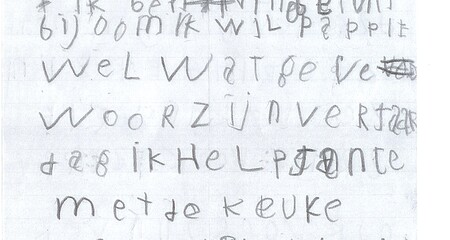 ik ben
bij oom ik wil pappie
weL Wat geVe
WooR Zijn VeRJaar
dag ik HeLP tante
met de keuke